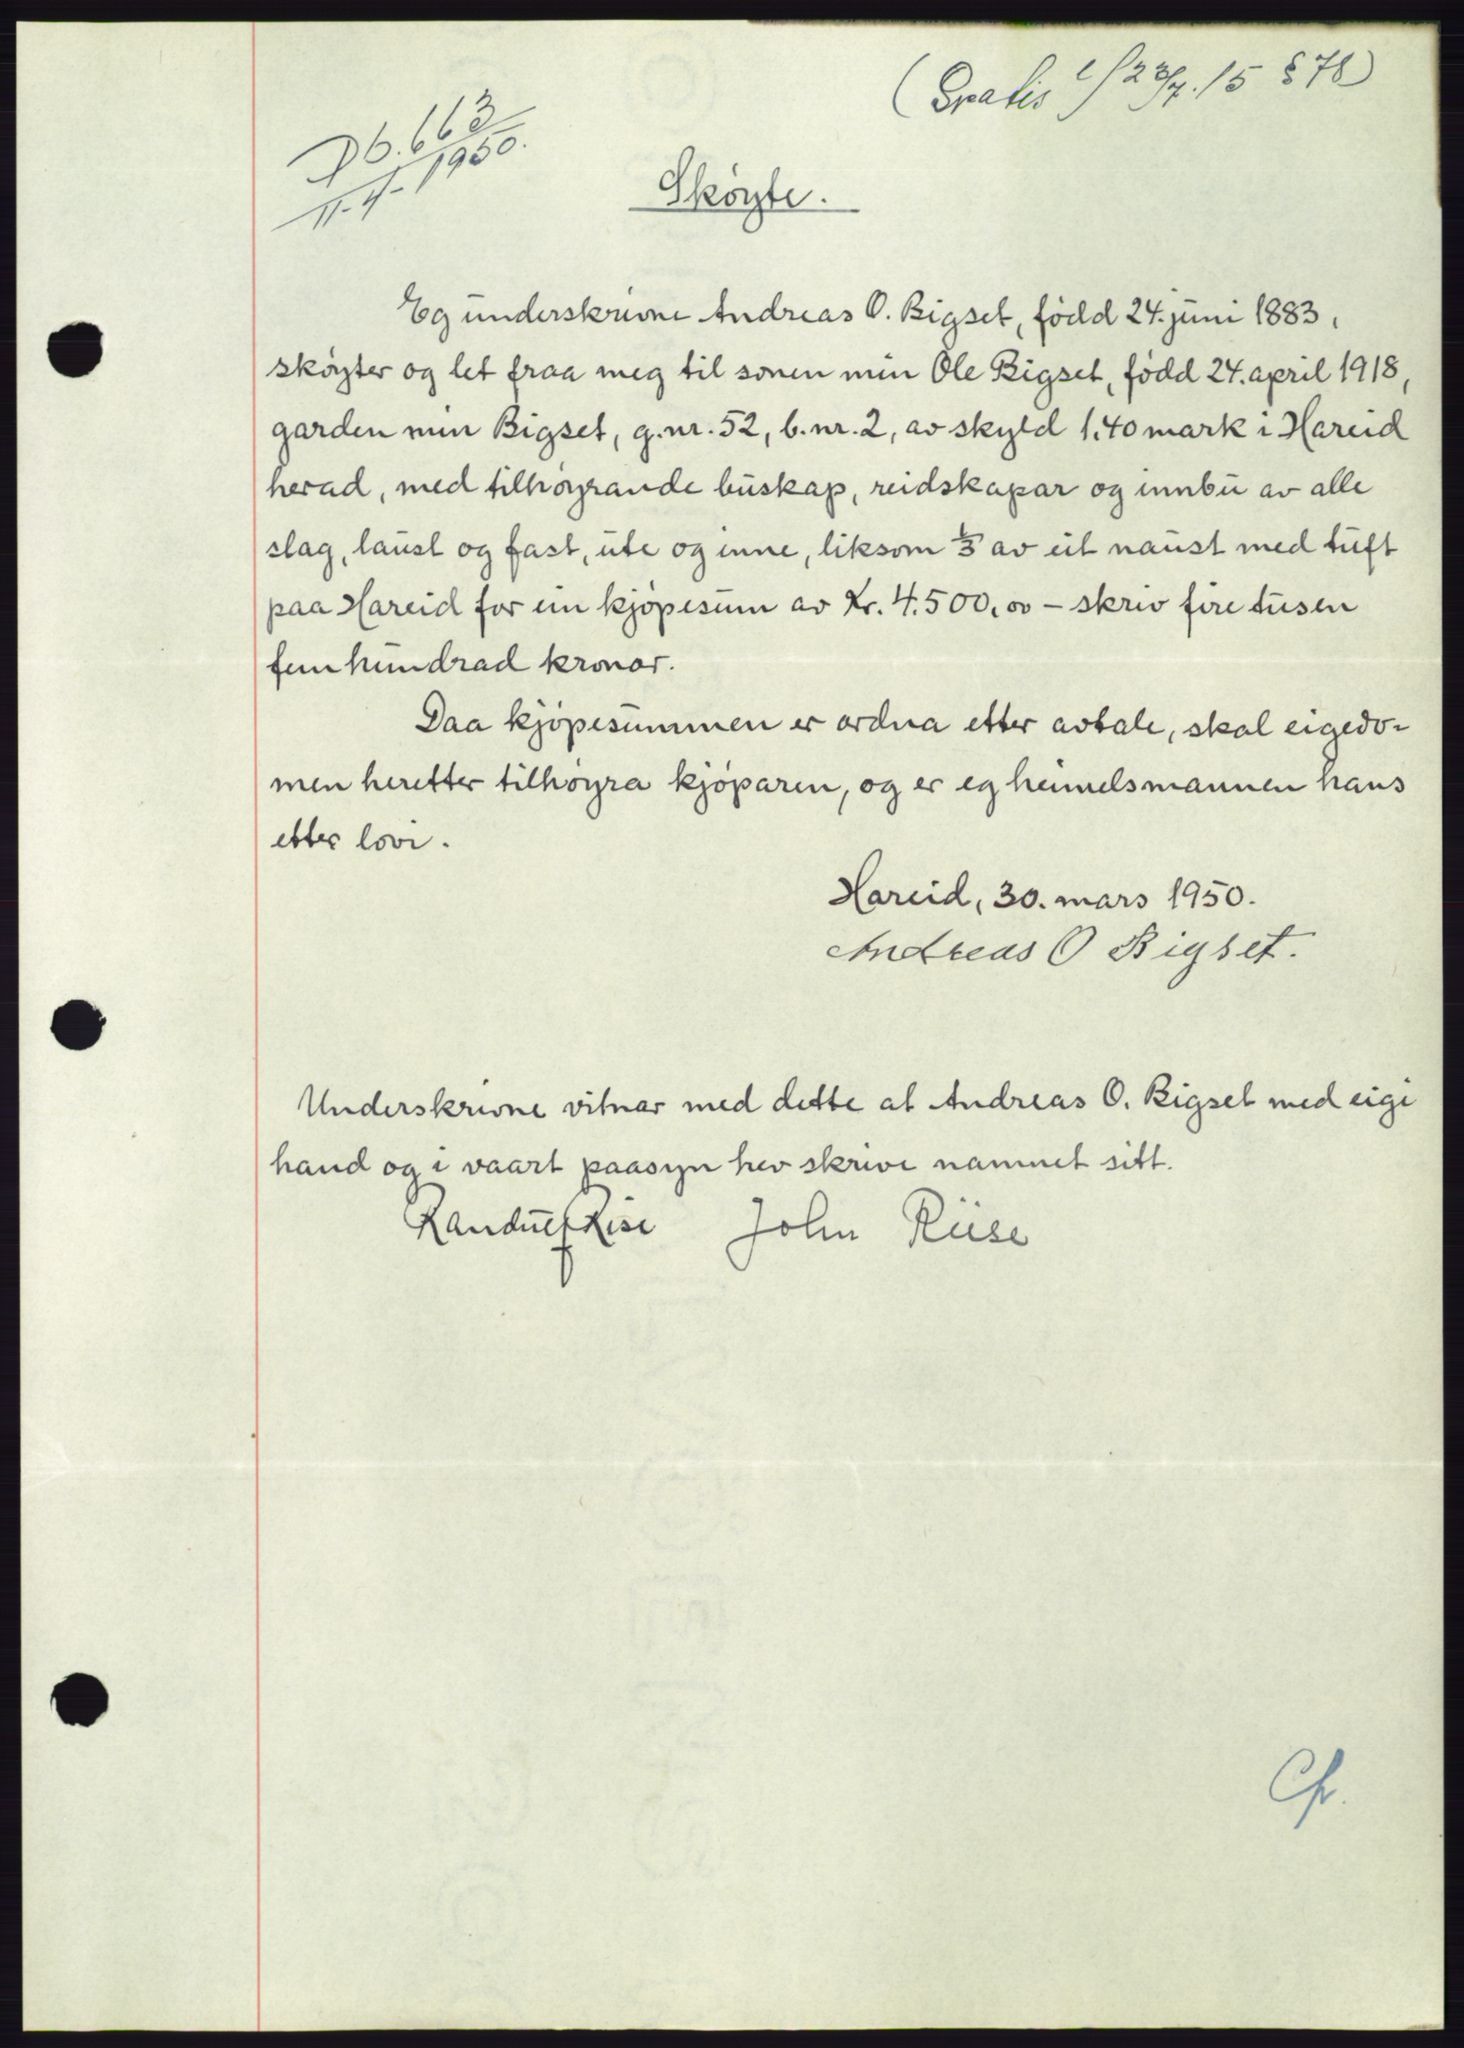 (Gratis l/ 23/7.15 § 78)
Db. 663
11-4-1950.
Skøyte.
Eg underskrivne Andreas O. Bigset, född 24. juni 1883,
skøyter og let fraa meg til sonen min Ole Bigset, född 24. april 1918,
garden min Bigset, g.nr. 52, b.nr. 2, av skyld 1.40 mark i Hareid
herad, med tilhøyrande buskap, reidskapar og innbu av alle
slag, laust og fast, ute og inne, liksom 1/3 av eit naust med tuft
paa Hareid for ein kjøpesum av Kr. 4.500,00 – skriv fire tusen
fem hundrad kronor.
Daa kjøpesummen er ordna etter avtale, skal eigedo-
men heretter tilhøyra kjøparen, og er eg heimelsmannen hans
etter lovi.
Hareid, 30. mars 1950.
Andreas O Bigset.
Underskrivne vitnar med dette at Andreas O. Bigset med eigi
hand og i vaart paasyn hev skrive namnet sitt.
Rise John Riise